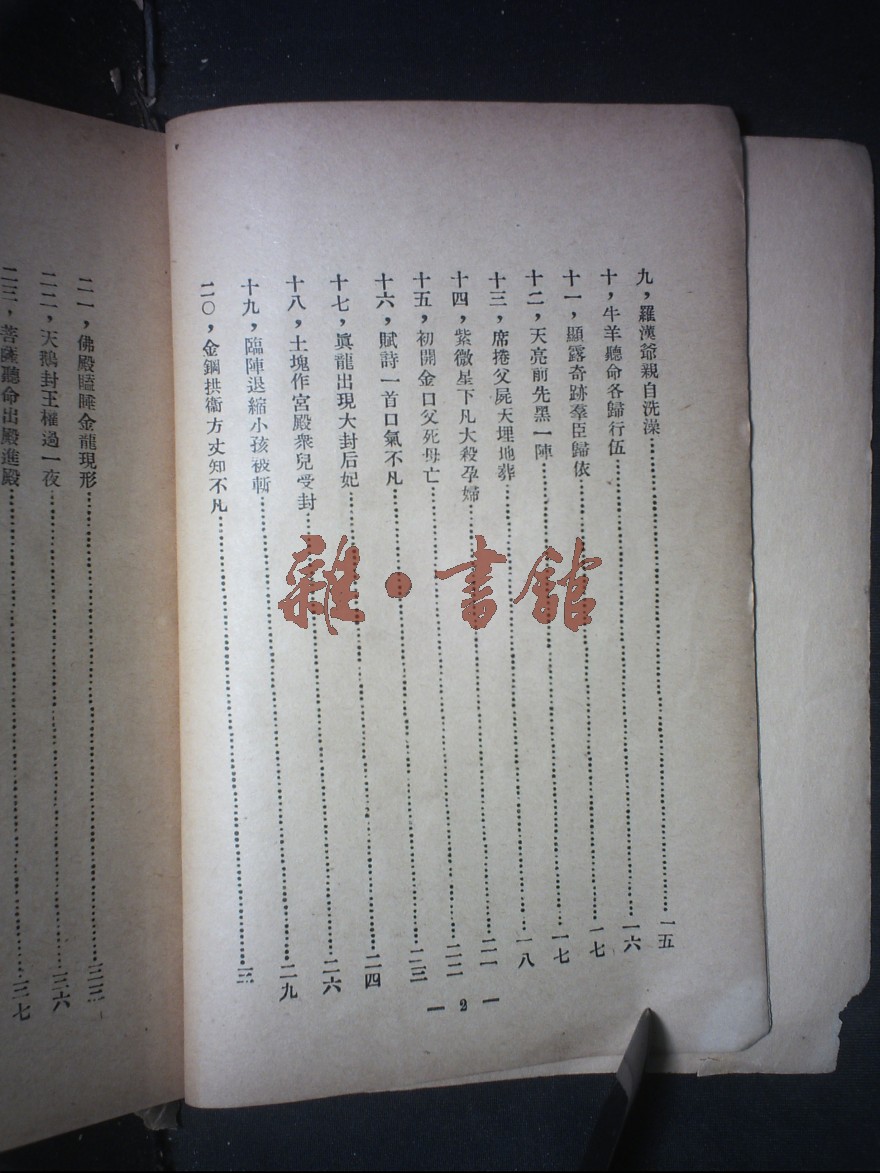 九，羅漢爺親自洗澡……一五
十，牛羊聽命各歸行伍……一六
十一，顯露奇跡羣臣歸依……一七
十二，天亮前先黑一陣……一七
十三，席捲父屍天埋地葬……一八
十四，紫微星下凡大殺孕婦……二一
十五，初開金口父死母亡……二二
十六，賦詩一首口氣不凡……二三
十七，眞龍出現大封后妃……二四
十八，土塊作宮殿衆兒受封……二六
十九，臨陣退縮小孩被斬……二九
二〇，金鋼拱衞方丈知不凡……三一
— 2 —
二一，佛殿瞌睡金龍現形……三三
二二，天鵝封王權過一夜……三六
二三，菩薩聽命出殿進殿……三七
雜·書館